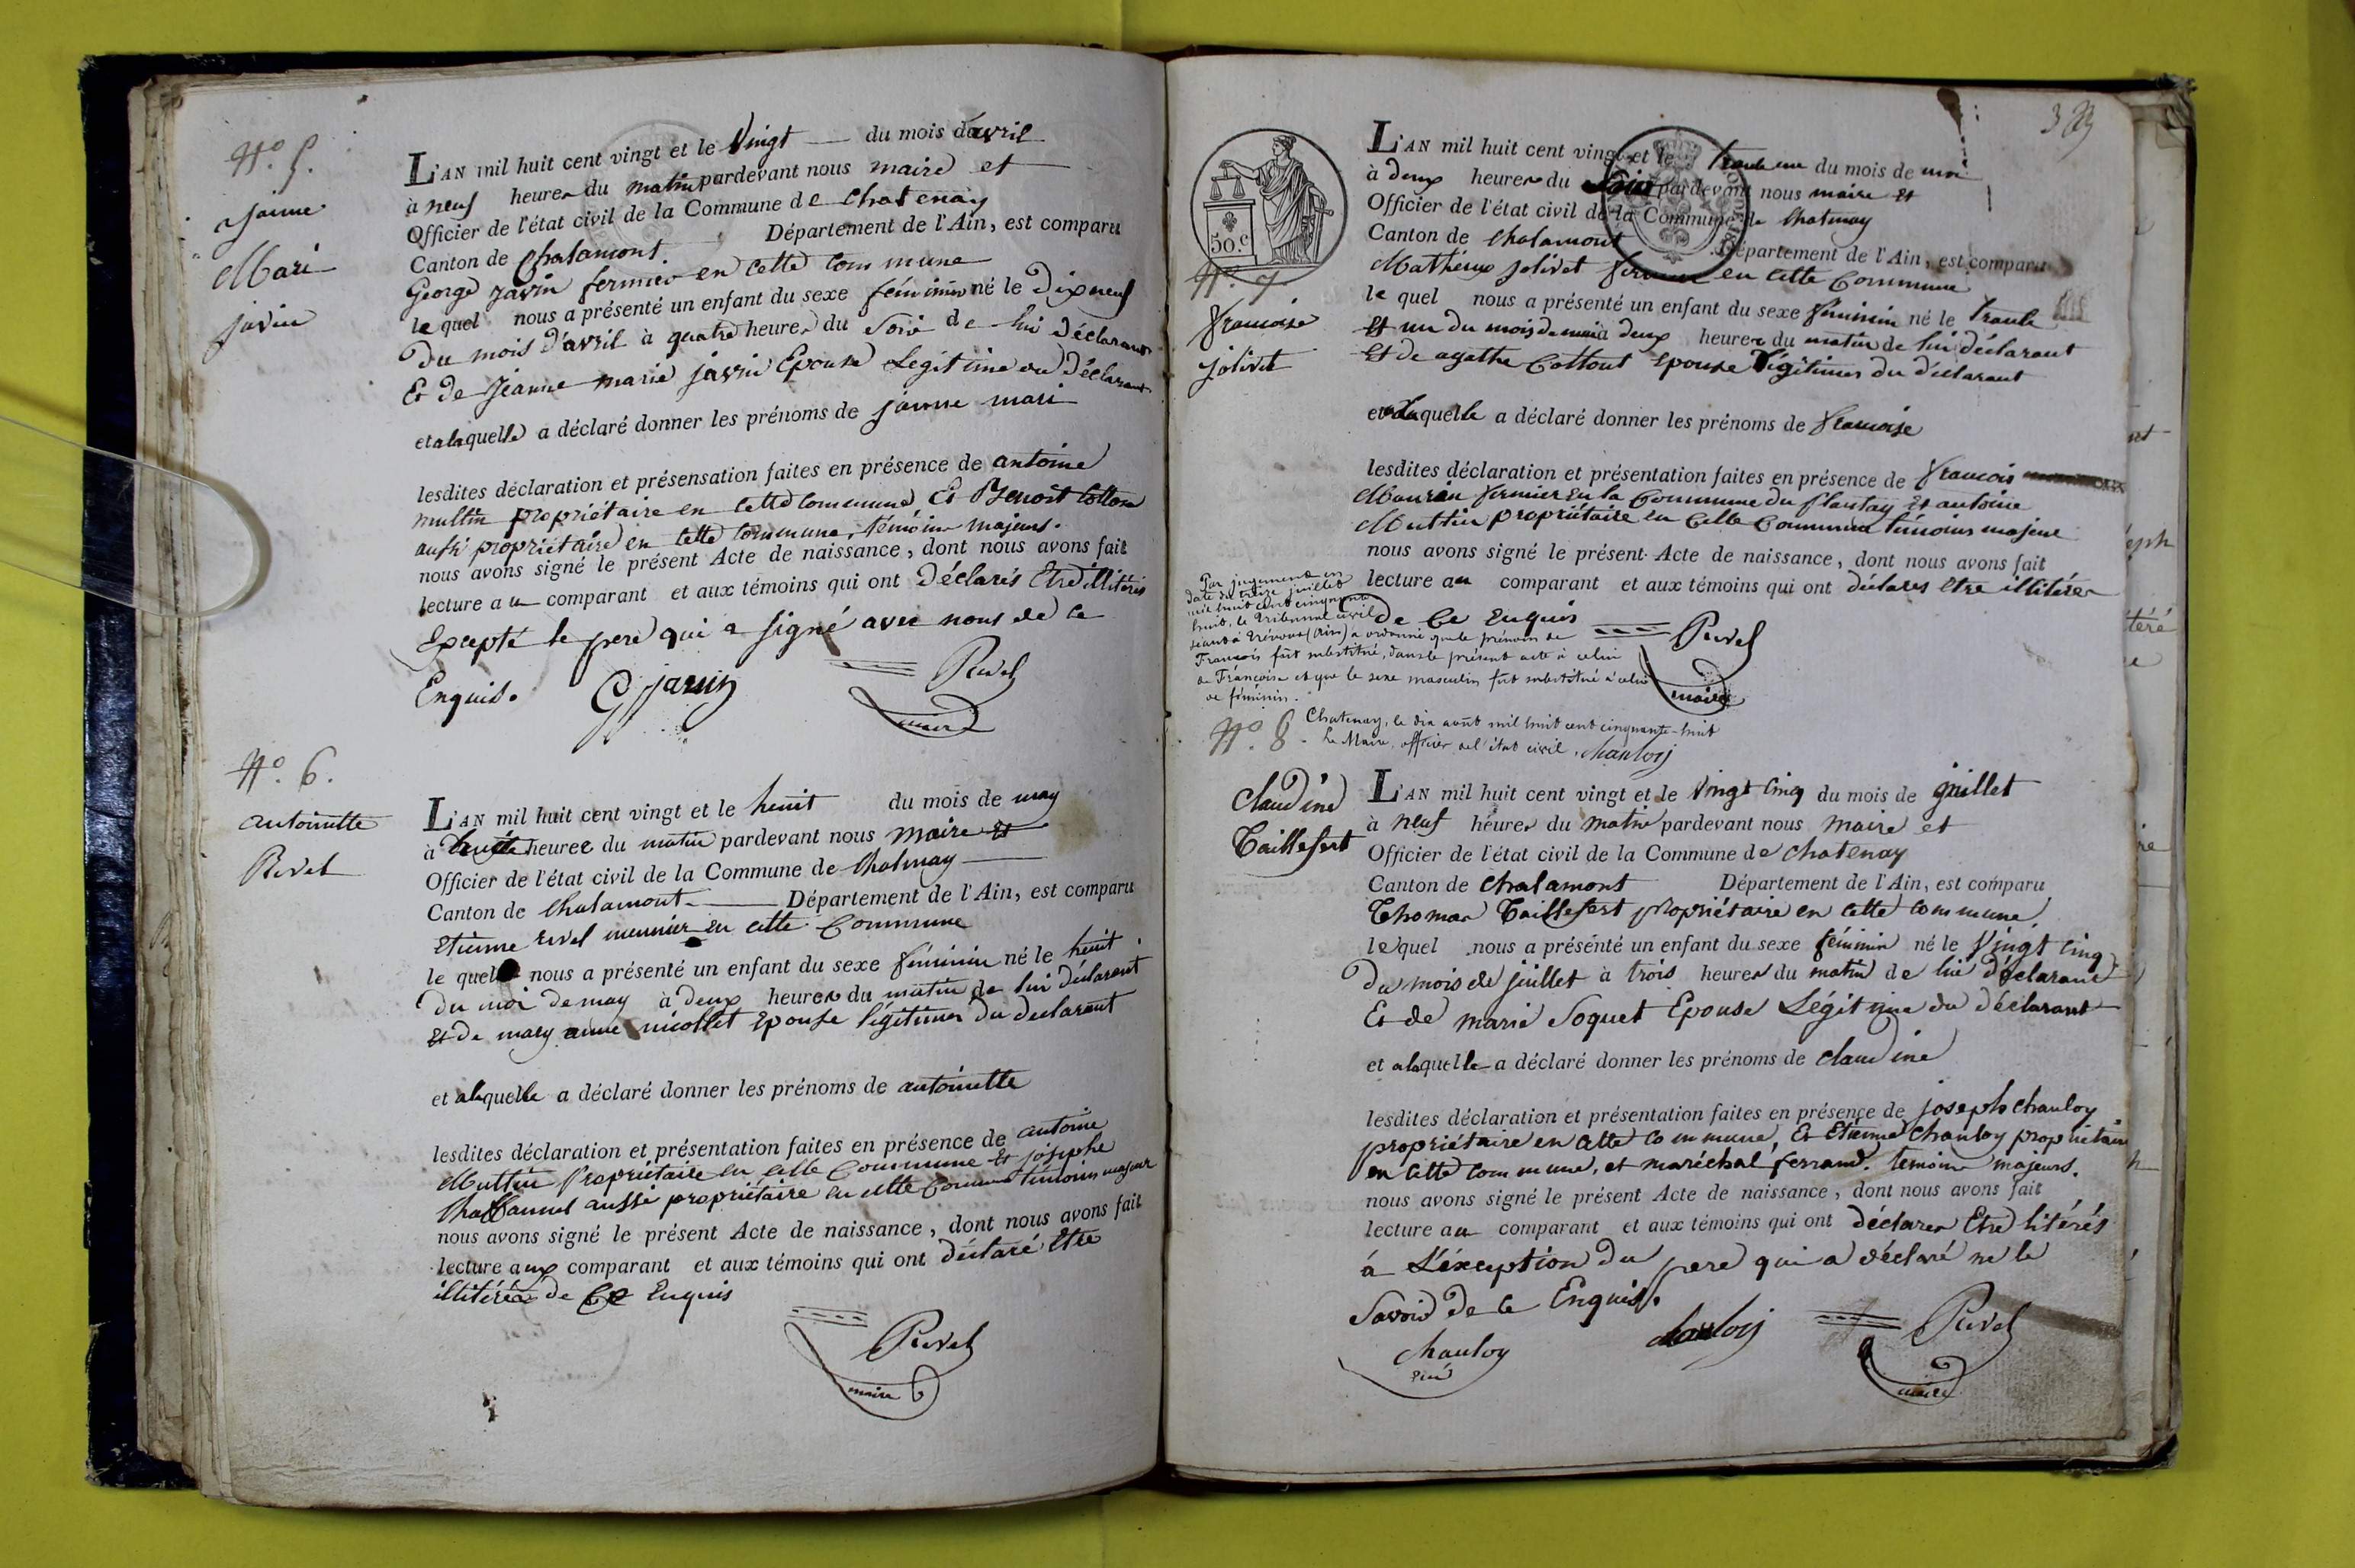 N.º 5.
janne
Mari
javin
L'AN mil huit cent vingt et le Vingt du mois d'avril
à neuf heures du matin pardevant nous maire et
Officier de l'état civil de la Commune de Chatenay
Canton de Chalamont. Département de l'Ain, est comparu
George javin fermier en cette commune
le quel nous a présenté un enfant du sexe féminin né le Dixneuf
Du mois d'avril à quatre heures du Soir de lui Déclarant
Et De Jeanne marie javin Epouse Legitime du Déclarant
et a laquelle a déclaré donner les prénoms de janne mari
lesdites déclaration et présensation faites en présence de antoine
multin propriétaire en cette commune Et Benoît Cotton
aussi propriétaire en cette commune, témoins majeurs.
nous avons signé le présent Acte de naissance, dont nous avons fait
lecture au comparant et aux témoins qui ont Déclarés Etre illitérés
Excepté le pere qui a signé avec nous de ce
Enquis. G javin Rivel
maire
N.º 6.
antoinette
Rivel
L'AN mil huit cent vingt et le heuit du mois de may
à heures du matin pardevant nous maire Et
Officier de l'état civil de la Commune de Chatenay
Canton de Chalamont Département de l'Ain, est comparu
Etienne rivel meunier en cette Commune
le quel nous a présenté un enfant du sexe féminin né le heuit
Du moi de may à deux heures du matin de lui déclarant
Et de mary anne nicollet Epouse légitimes du declarant
et alaquelle a déclaré donner les prénoms de antoinette
lesdites déclaration et présentation faites en présence de antoine
Muttin Propriétaire en cette Commune Et josephe
aussi propriétaire en cette Commune témoins majeur
nous avons signé le présent Acte de naissance, dont nous avons fait
lecture aux comparant et aux témoins qui ont déclaré Etre
illitérés de Ce Enquis
Rivel
maire
50.c
N.º 7.
francoise
jolivet
L'AN mil huit cent vingt et le trante un du mois de mai
à deux heures du Soir pardevant nous maire Et
Officier de l'état civil de la Commune de Chatenay
Canton de Chalamont Département de l'Ain, est comparu
Mathieux jolivet fermier en cette Commune
le quel nous a présenté un enfant du sexe féminin né le trante
Et un du mois de mai à deux heures du matin de lui déclarant
Et de agathe Cottont Epouse Légitimes du déclarant
et alaquelle a déclaré donner les prénoms de francoise
lesdites déclaration et présentation faites en présence de francois
fermier en la Commune du plantay Et antoine
Muttin propriétaire en Cette Commune témoins majeur
nous avons signé le présent Acte de naissance, dont nous avons fait
lecture au comparant et aux témoins qui ont déclares Etre illitéres
de Ce Enquis Rivel
maire
Par jugement en
date du treize juillet
mil huit cent cinquante
huit, le tribunal civil
séant à Trévoux (Ain) a ordonné que le prénom de
François fût substitué, dans le présent acte à celui
de Françoise et que le sexe masculin fût substitué à celui
de féminin.
Chatenay, le dix août mil huit cent cinquante-huit
Le Maire, officier de l'état civil. Chanloy
N.º 8
Claudine
Taillefert
L'AN mil huit cent vingt et le Vingt Cinq du mois de juillet
à neuf heures du matin pardevant nous maire et
Officier de l'état civil de la Commune de Chatenay
Canton de Chalamont Département de l'Ain, est comparu
Thomas Taillefert propriétaire en cette commune
le quel nous a présenté un enfant du sexe féminin né le Vingt Cinq
Du mois de juillet à trois heures du matin de lui déclarant
Et de marie Soquet Epouse Légitime du déclarant
et alaquelle a déclaré donner les prénoms de claudine
lesdites déclaration et présentation faites en présence de joseph Chanloy
propriétaire en cette commune, Et Etienne Chanloy propriétaire
en cette commune, et maréchal ferrand. témoins majeurs.
nous avons signé le présent Acte de naissance, dont nous avons fait
lecture au comparant et aux témoins qui ont déclarés Etre litérés
à L'éxception du pere qui a déclaré ne le
Savoir de Ce Enquis.
Chanloy chanloy Rivel
maire